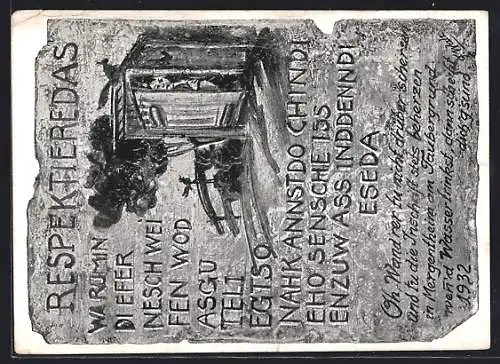 RESPEKTIEREDAS
WARUMIN
DIEFER
NESCHWEI
FEN WOD
ASGU
TELI
EGTSO
NAHKANNSTDO CHINDI
EHO SENSCHE ISS
ENZUWASSINDDENNDI
ESEDA
Oh Wand'rer tu nicht drüber scherzen
und tu die Inschrift stets beherzen
in Mergentheim am Taubergrund
wen'd Wasser trinkst, dann scheißt
1932